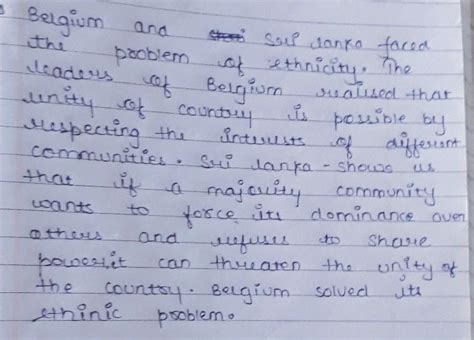 Belgium and Sri lanka faced
the problem of ethnicity. The
leaders of Belgium realised that
unity of country is possible by
respecting the interests of different
communities. Sri lanka - shows us
that if a majority community
wants to force its dominance over
others and refuses to share
power,it can threaten the unity of
the country. Belgium solved its
ethinic problem.